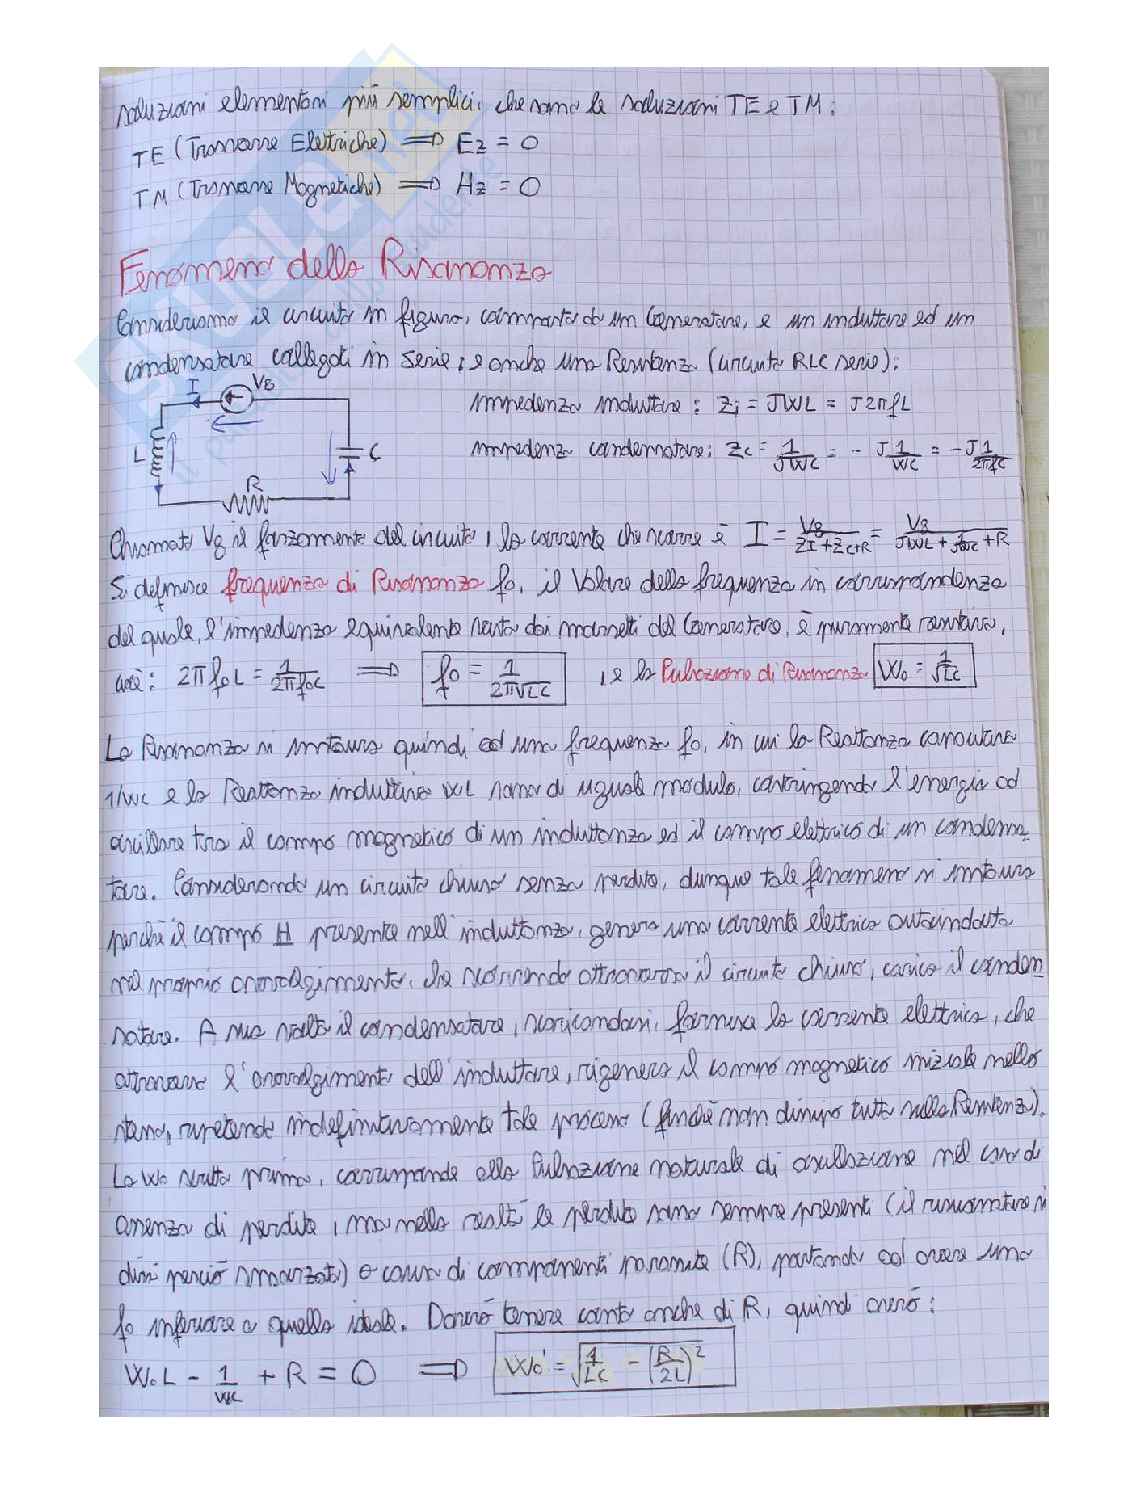 soluzioni elementari più semplici, che sono le soluzioni TE e TM:
TE (Trasverse Elettriche) ⇒ Ez = 0
TM (Trasverse Magnetiche) ⇒ Hz = 0
Fenomeno della Risonanza
Consideriamo il circuito in figura, composto da un Generatore, e un induttore ed un
condensatore collegati in serie; e anche una Resistenza (circuito RLC serie):
I Vg
L C
R
impedenza induttore: Zi = JWL = J2πfL
impedenza condensatore: Zc = 1/JWC = - J 1/WC = - J 1/2πfC
Chiamato Vg il forzamento del circuito, la corrente che scorre è I = Vg/ZI+Zc+R = Vg/JWL + 1/JWC + R
Si definisce frequenza di Risonanza fo, il Valore della frequenza in corrispondenza
del quale, l'impedenza equivalente vista dai morsetti del Generatore, è puramente resistiva,
cioè: 2πfoL = 1/2πfoC ⇒ fo = 1/2π√LC , e la Pulsazione di Risonanza Wo = 1/√LC
La Risonanza si instaura quindi ad una frequenza fo, in cui la Reattanza capacitiva
1/WC e la Reattanza induttiva WL sono di uguale modulo, costringendo l'energia ad
oscillare tra il campo magnetico di un induttanza ed il campo elettrico di un condensa_
tore. Considerando un circuito chiuso senza perdite, dunque tale fenomeno si instaura
perché il campo H presente nell'induttanza, genera una corrente elettrica autoindotta
nel proprio avvolgimento, che scorrendo attraverso il circuito chiuso, carica il conden_
satore. A sua volta il condensatore, scaricandosi, fornisce la corrente elettrica, che
attraverso l'avvolgimento dell'induttore, rigenera il campo magnetico iniziale nello
stesso, ripetendo indefinitivamente tale processo (finché non dissipo tutto sulla Resistenza).
La Wo scritta prima, corrisponde alla Pulsazione naturale di oscillazione nel caso di
assenza di perdite, ma nella realtà le perdite sono sempre presenti (il risuonatore si
dirà perciò smorzato) a causa di componenti parassite (R), portando ad avere una
fo inferiore a quella ideale. Dovrò tenere conto anche di R, quindi avrò:
WoL - 1/WC + R = 0 ⇒ Wo' = √(1/LC - (R/2L)²)